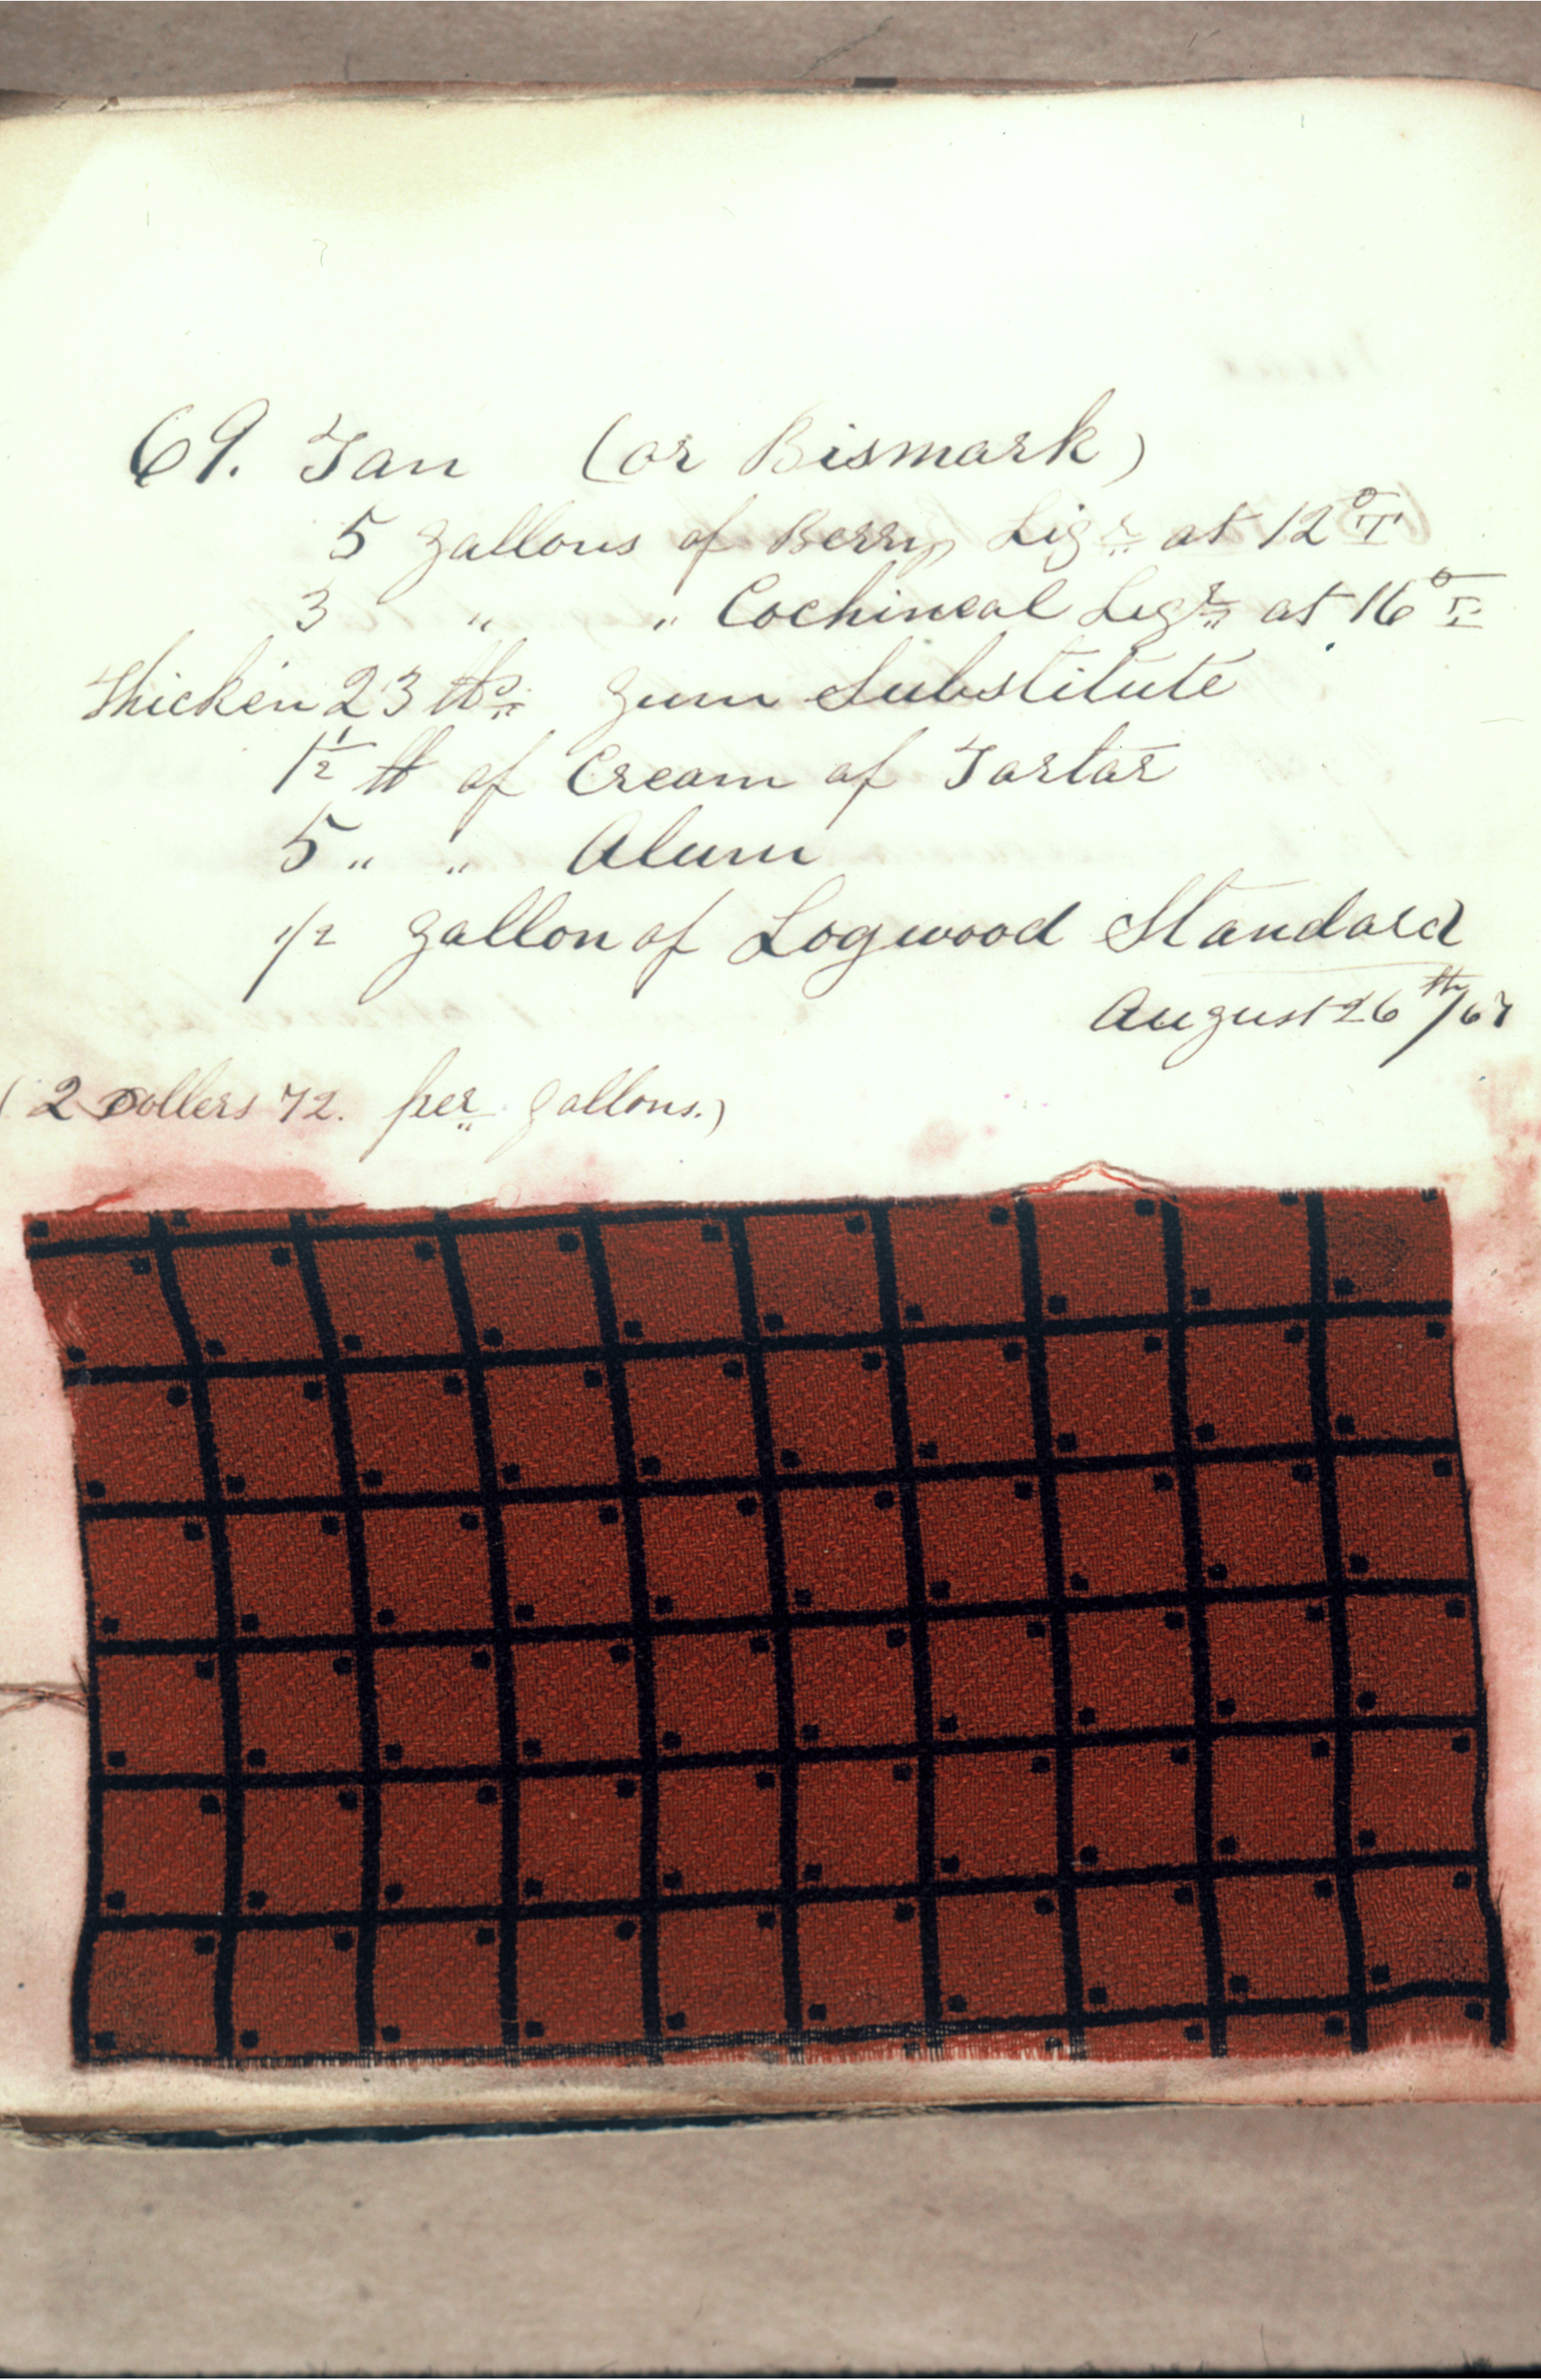 69. Tan (or Bismark)
5 gallons of Berry Liqr at 12° T
3 " " Cochineal Liqr at 16° T
Thicken 23 lbs gum Substitute
1 1/2 lb of Cream of Tartar
5 " " Alum
1/2 gallon of Logwood Standard
August 26th/67
(2 Dollers 72. per gallons.)